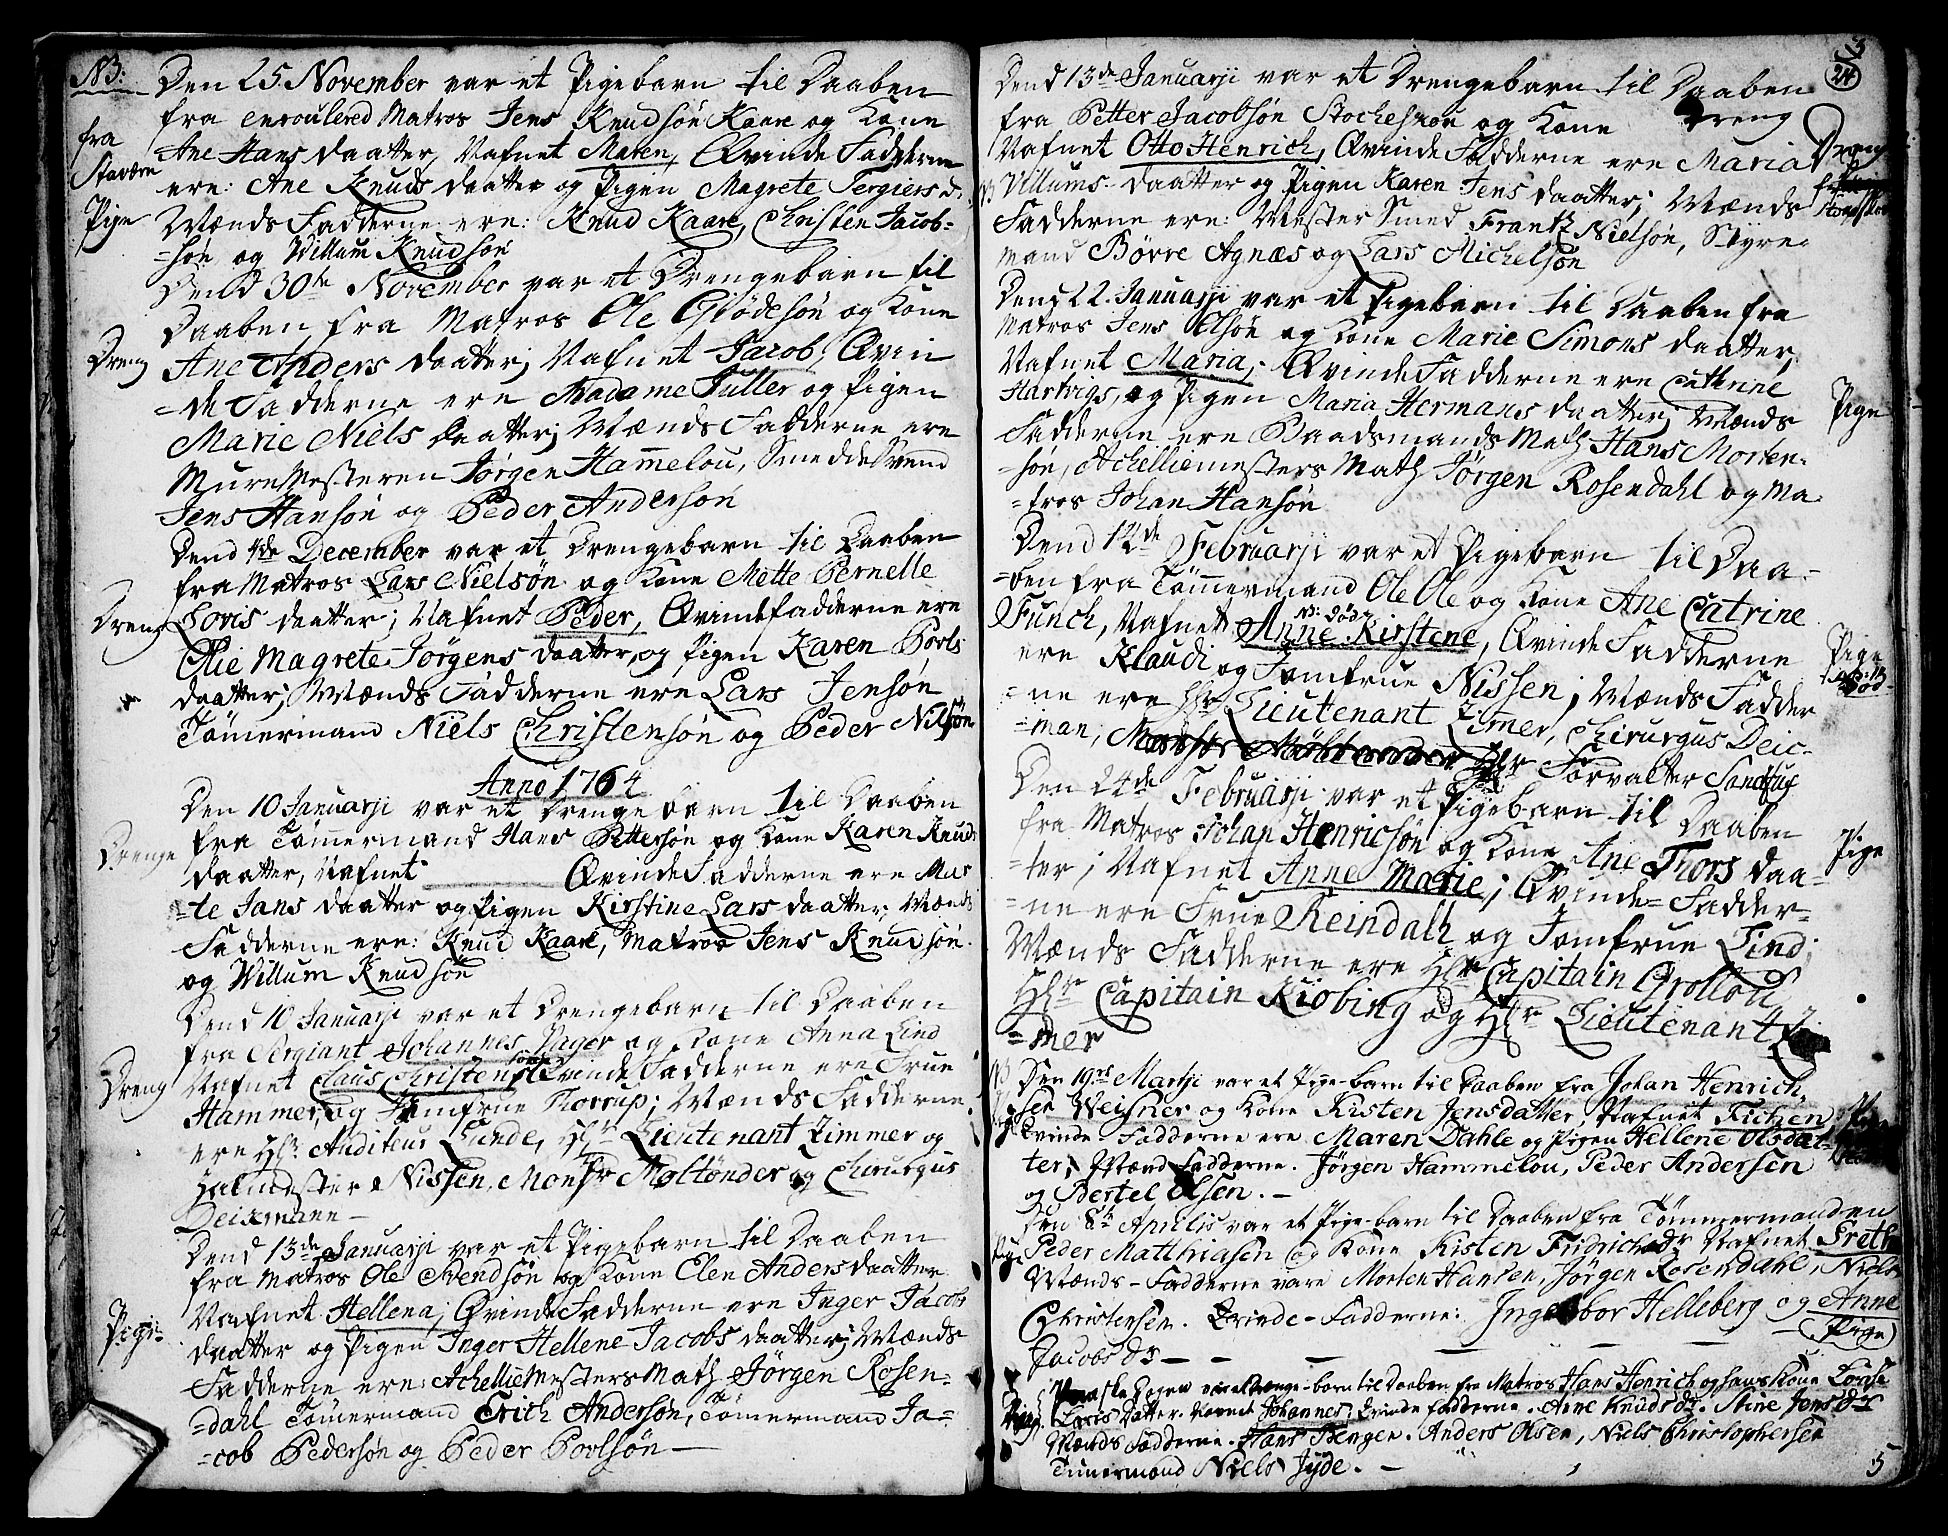 NB: Den 25 November var et Pigebarn til Daaben
fra enroulered Matros Jens Knudsøn Kaare og Kone
fra Staværn
Ane Hans daatter, Nafnet Maren, Qvinde Fadderne
ere: Ane Knuds daatter og Pigen Magrete Tergiers d.
Pige
Mænds Fadderne ere: Knud Kaare, Christen Jacob-
=søn og Willum Knudsøn
Dend 30te November var et Drengebarn til
Daaben fra Matros Ole Gjødesøn og Kone
Dreng
Ane Anders daatter; Nafnet Jacob, Qvin
=de Fadderne ere Madame Fuller og Pigen
Marie Niels daatter; Mænds Fadderne ere
Mure Mesteren Jørgen Hammelou, Smedde Svend
Jens Hansøn og Peder Andersøn
Dend 4de December var et Drengebarn til Daaben
fra Matros Lars Nielsøn og Kone Mette Pernelle
Dreng
Lovis daatter; Nafnet Peder, Qvindefadderne ere
Elie Magrete Jørgens daatter, og Pigen Karen Povls
daatter; Mænds Fadderne ere Lars Jensøn
Tømermand Niels Christensøn og Peder Nilsøn
Anno 1764
Den 10 Januarji var et Drenge barn til Daaben
fra Tømermand Hans Pettersøn og Kone Karen Knuds
Drenge
daatter, Nafnet Qvinde Fadderne ere Mar
=te Jans daatter og Pigen Kirstine Lars daatter, Mænds
Fadderne ere: Knud Kaare, Matros Jens Knudsøn
og Willum Knudsøn
Dend 10 Januarji var et Drengebarn til Daaben
fra Sergiant Johannes Vager og Kone Anna Lind
Dreng
Nafnet Claus Christensønn Qvinde Fadderne ere Frue
Hammer, og Jomfrue Thorrup; Mænds Fadderne
ere Hr: Auditeur Lunde, Hr Lieutenant Zimmer og
Halmester Nissen, Monsr Moltönder og Chirurgus
Deixmann
Dend 13de Januarji var et Pigebarn til Daaben
fra Matros Ole Svendsøn og Kone Elen Anders daatter
Pige
Nafnet Hellena; Qvinde Fadderne ere Inger Jacobs
daatter og Pigen Inger Hellene Jacobs daatter; Mænds
Fadderne ere: Achelliemesters Math Jørgen Rosen-
=dahl Tømermand Erich Andersøn, Tømermand Ja=
=cob Pedersøn og Peder Povlsøn
3
24
Dend 13de Januarji var et Drengebarn til Daaben
fra Petter Jacobsøn og Kone
Dreng
Nafnet Otto Henrich, Qvinde Fadderne ere Maria
Dreng
Villums daatter og Pigen Karen Jens daatter; Mænds
Fadderne ere: Mester Smed Frantz Nielsøn, Styre-
mand Børre Agnæs og Lars Michelsøn
Dend 22 Januarji var et Pigebarn til Daaben fra
Matros Jens Olsøn og Kone Marie Simons daatter,
Nafnet Maria; Qvinde Fadderne ere Cathrine
Hartvigs, og Pigen Maria Hermans daatter; Mænds
Pige
Fadderne ere Baadsmands Math Hans Morten-
=søn, Achelliemesters Math Jørgen Rosendahl og Ma-
=tros Johan Hansøn
Dend 12de Februarji var et Pigebarn til Daa-
=ben fra Tømmermand Ole Ole og Kone Ane Catrine
NB: død
Funch, Nafnet Anne Kirstene, Qvinde Fadderne
Pige
ere Klaudi og Jomfrue Nissen; Mænds Fadder
=ne ere Hr Lieutenant Zimer, Chirurgus Deic-
=man, Hr Forvalter Sandfus
Den 24de Februarji var et Pigebarn til Daaben
fra Matros Johan Henricsøn og Kone Ane Thors daa=
Pige
=ter; Nafnet Anne Marie; Qvinde= Fadder-
=ne ere Frue Reindalh og Jomfrue Lind;
Mænds Fadderne ere Hr Capitain Grollou
Hr Capitain Kiøbing og Hr Lieutenant Zim
=mer
NB Den 19de Martji var et Pige-barn til Daaben fra Johan Henrich-
sen Weisner og Kone Kisten Jensdatter, Nafnet
Qvinde Fadderne ere Maren Dahle og Pigen Hellene Olsdat-
ter, Mænd Fadderne. Jørgen Hammelou, Peder Andersen
og Bertel Olsen.
Den 8te Aprilis var et Pige-barn til Daaben fra Tømmermanden
Pige
Peder Matthiasen og Kone Kisten Fridrichsdr Nafnet Greth
Mænds-Fadderne vare Morten Hansen, Jørgen Rosendahl, Niels
Christensen. Qvinde-Fadderne: Ingebor Helleberg og Anne
Jacobs Dr
(Pige)
Paaske Dagen var Drenge-barn til Daaben fra Matros Hans Henrich og hans Kone Lovise
Lars Datter. Navnet Johannes, Qvinde Fadderne. Anne Knuds dr. Stine Jens Dr
Mænds Fadderne. Hans Bengen. Anders Olsen, Niels Christophersen
Timermand Niels Jyde.
5